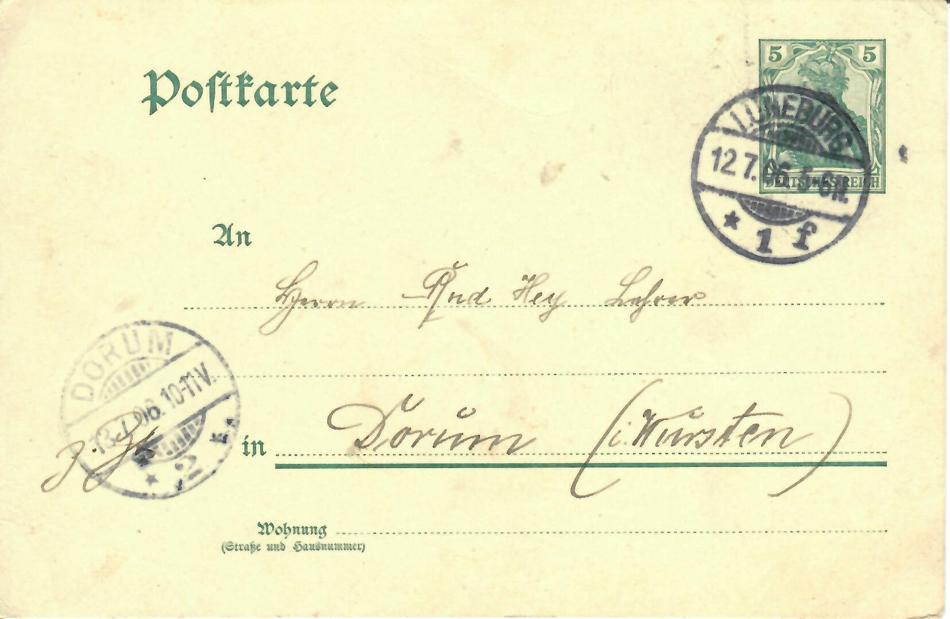 Postkarte
5 5
DEUTSCHES REICH
LÜNEBURG
12.7.06. 5-6N.
* 1 f
An
Herrn Rud. Hey Lehrer
DORUM
13.7.06. 10-11V.
* 2
in Dorum (i. Wursten)
Wohnung
(Straße und Hausnummer)